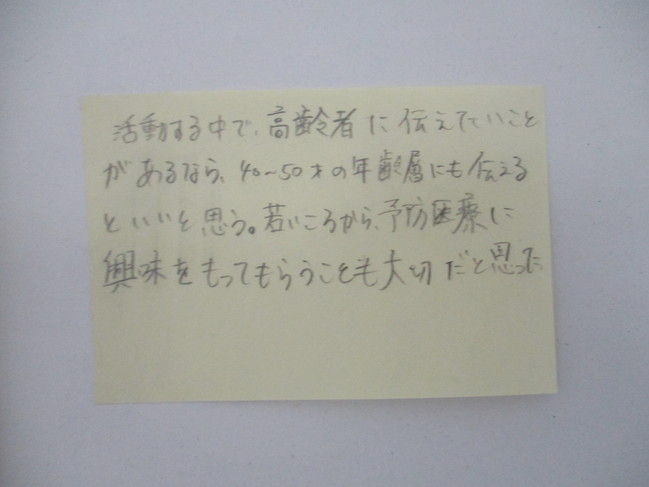 活動する中で、高齢者に伝えていいこと
があるなら、40~50才の年齢層にも伝える
といいと思う。若いころから、予防医療に
興味をもってもらうことも大切だと思った